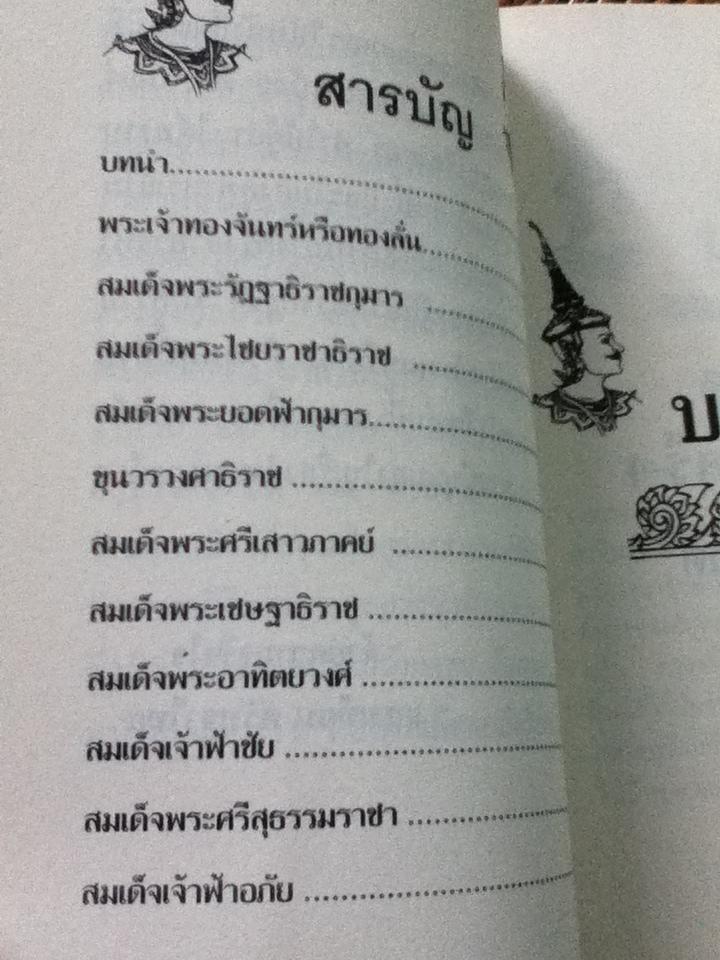 สารบัญ
บทนำ
พระเจ้าทองจันทร์หรือทองลั่น
สมเด็จพระรัฏฐาธิราชกุมาร
สมเด็จพระไชยราชาธิราช
สมเด็จพระยอดฟ้ากุมาร
ขุนวรวงศาธิราช
สมเด็จพระศรีเสาวภาคย์
สมเด็จพระเชษฐาธิราช
สมเด็จพระอาทิตยวงศ์
สมเด็จเจ้าฟ้าชัย
สมเด็จพระศรีสุธรรมราชา
สมเด็จเจ้าฟ้าอภัย
บ